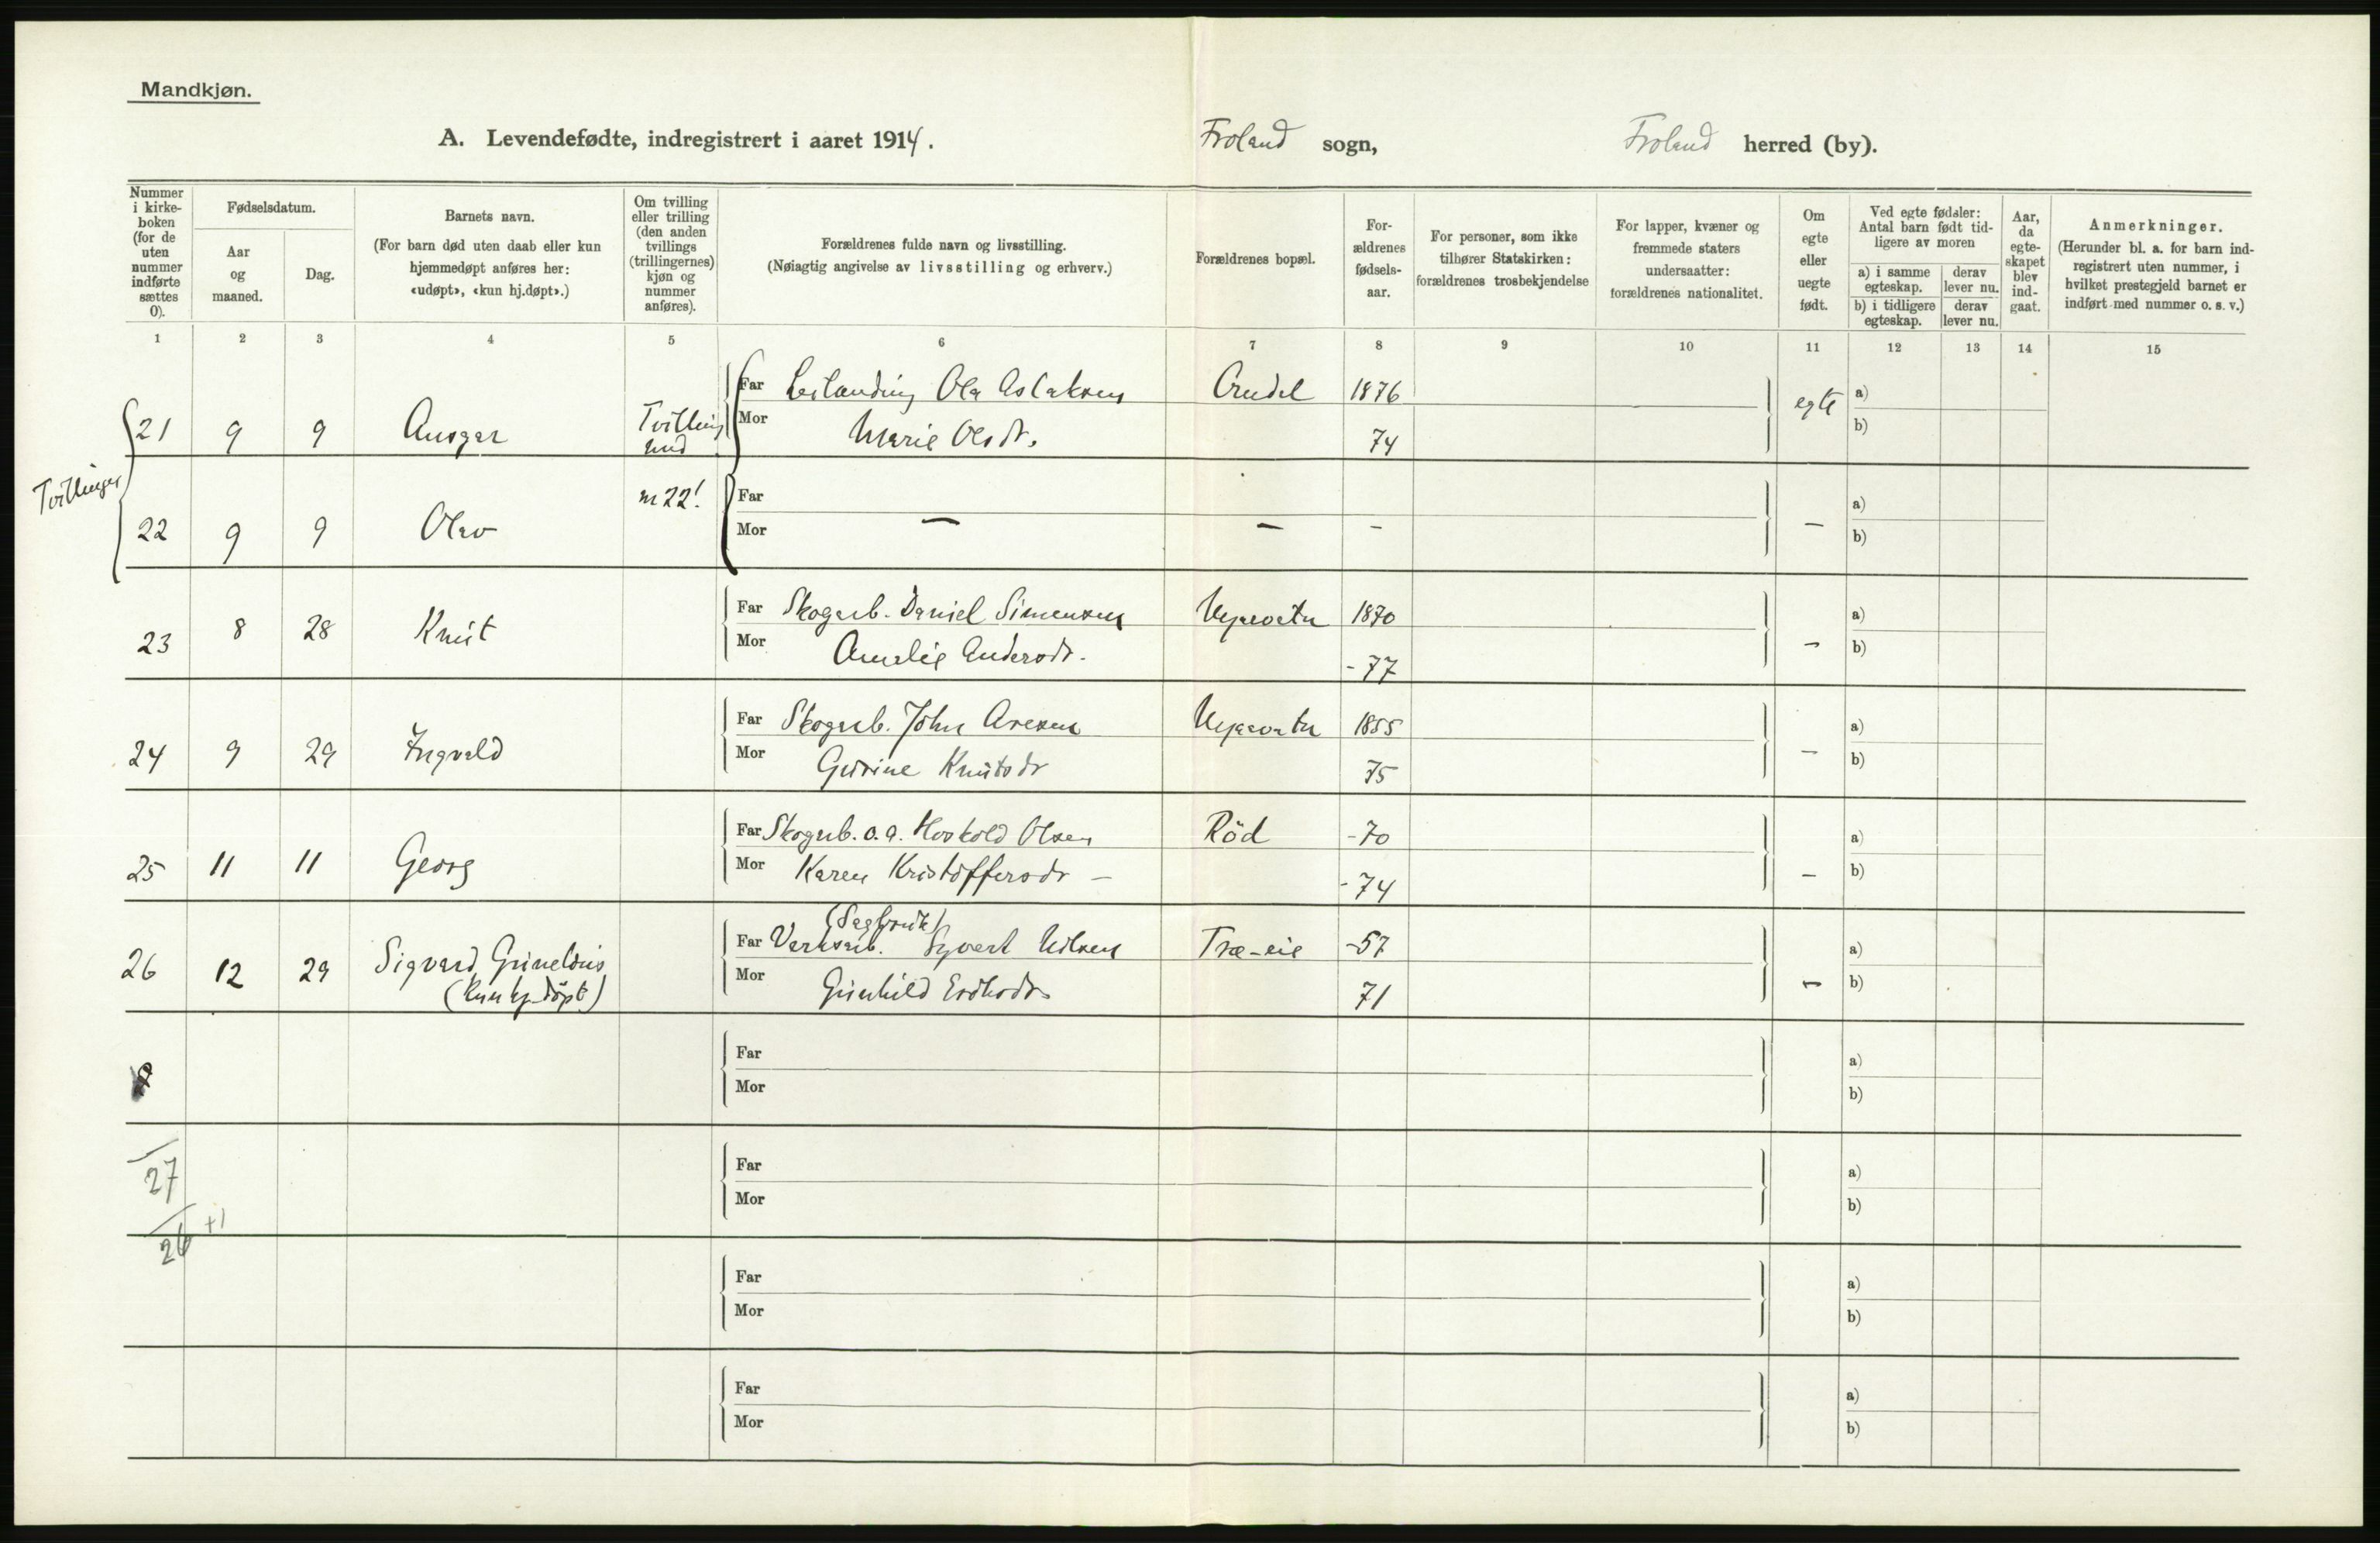 Mandkjøn.
A. Levendefødte, indregistrert i aaret 1914. Froland sogn, Froland herred (by).
Nummer i kirkeboken (for de uten nummer indførte sættes 0).
Fødselsdatum.
Aar og maaned.
Dag.
Barnets navn.
(For barn død uten daab eller kun hjemmedøpt anføres her: «udøpt», «kun hj.døpt».)
Om tvilling eller trilling (den anden tvillings (trillingernes) kjøn og nummer anføres).
Forældrenes fulde navn og livsstilling.
(Nøiagtig angivelse av livsstilling og erhverv.)
Forældrenes bopæl.
For-ældrenes fødsels-aar.
For personer, som ikke tilhører Statskirken: forældrenes trosbekjendelse
For lapper, kvæner og fremmede staters undersaatter: forældrenes nationalitet.
Om egte eller uegte født.
Ved egte fødsler: Antal barn født tid-ligere av moren
a) i samme egteskap.
derav lever nu.
b) i tidligere egteskap.
derav lever nu.
Aar, da egte-skapet blev ind-gaat.
Anmerkninger.
(Herunder bl. a. for barn ind-registrert uten nummer, i hvilket prestegjeld barnet er indført med nummer o. s. v.)
1 2 3 4 5 6 7 8 9 10 11 12 13 14 15
Tvillinger
Far Ola Aslaksen 1876 a)
21 9 9 Ansgar Tvilling Mor Marie Olsdr. 74 egte b)
med
nr 22! Far a)
22 9 9 Olav Mor — — - — b)
Far Skogarb. Daniel Simensen 1870 a)
23 8 28 Knut Mor Amalie Andersdr. -77 - b)
Far Skogarb. John 1855 a)
24 9 29 Ingvald Mor Gurine Knutsdr 75 — b)
Far Skogarb. o. a. Olsen Röd -70 a)
25 11 11 Georg Mor Karen Kristoffersdr — -74 — b)
(Sagbruk)
Far Verksarb. Syvert Nilsen Træ-eie -57 a)
26 12 29 Sigvard Grineldius Mor Gunhild 71 - b)
(kun hj. döpt)
Far a)
Mor b)
Far a)
27 Mor b)
+1
26
Far a)
Mor b)
Far a)
Mor b)